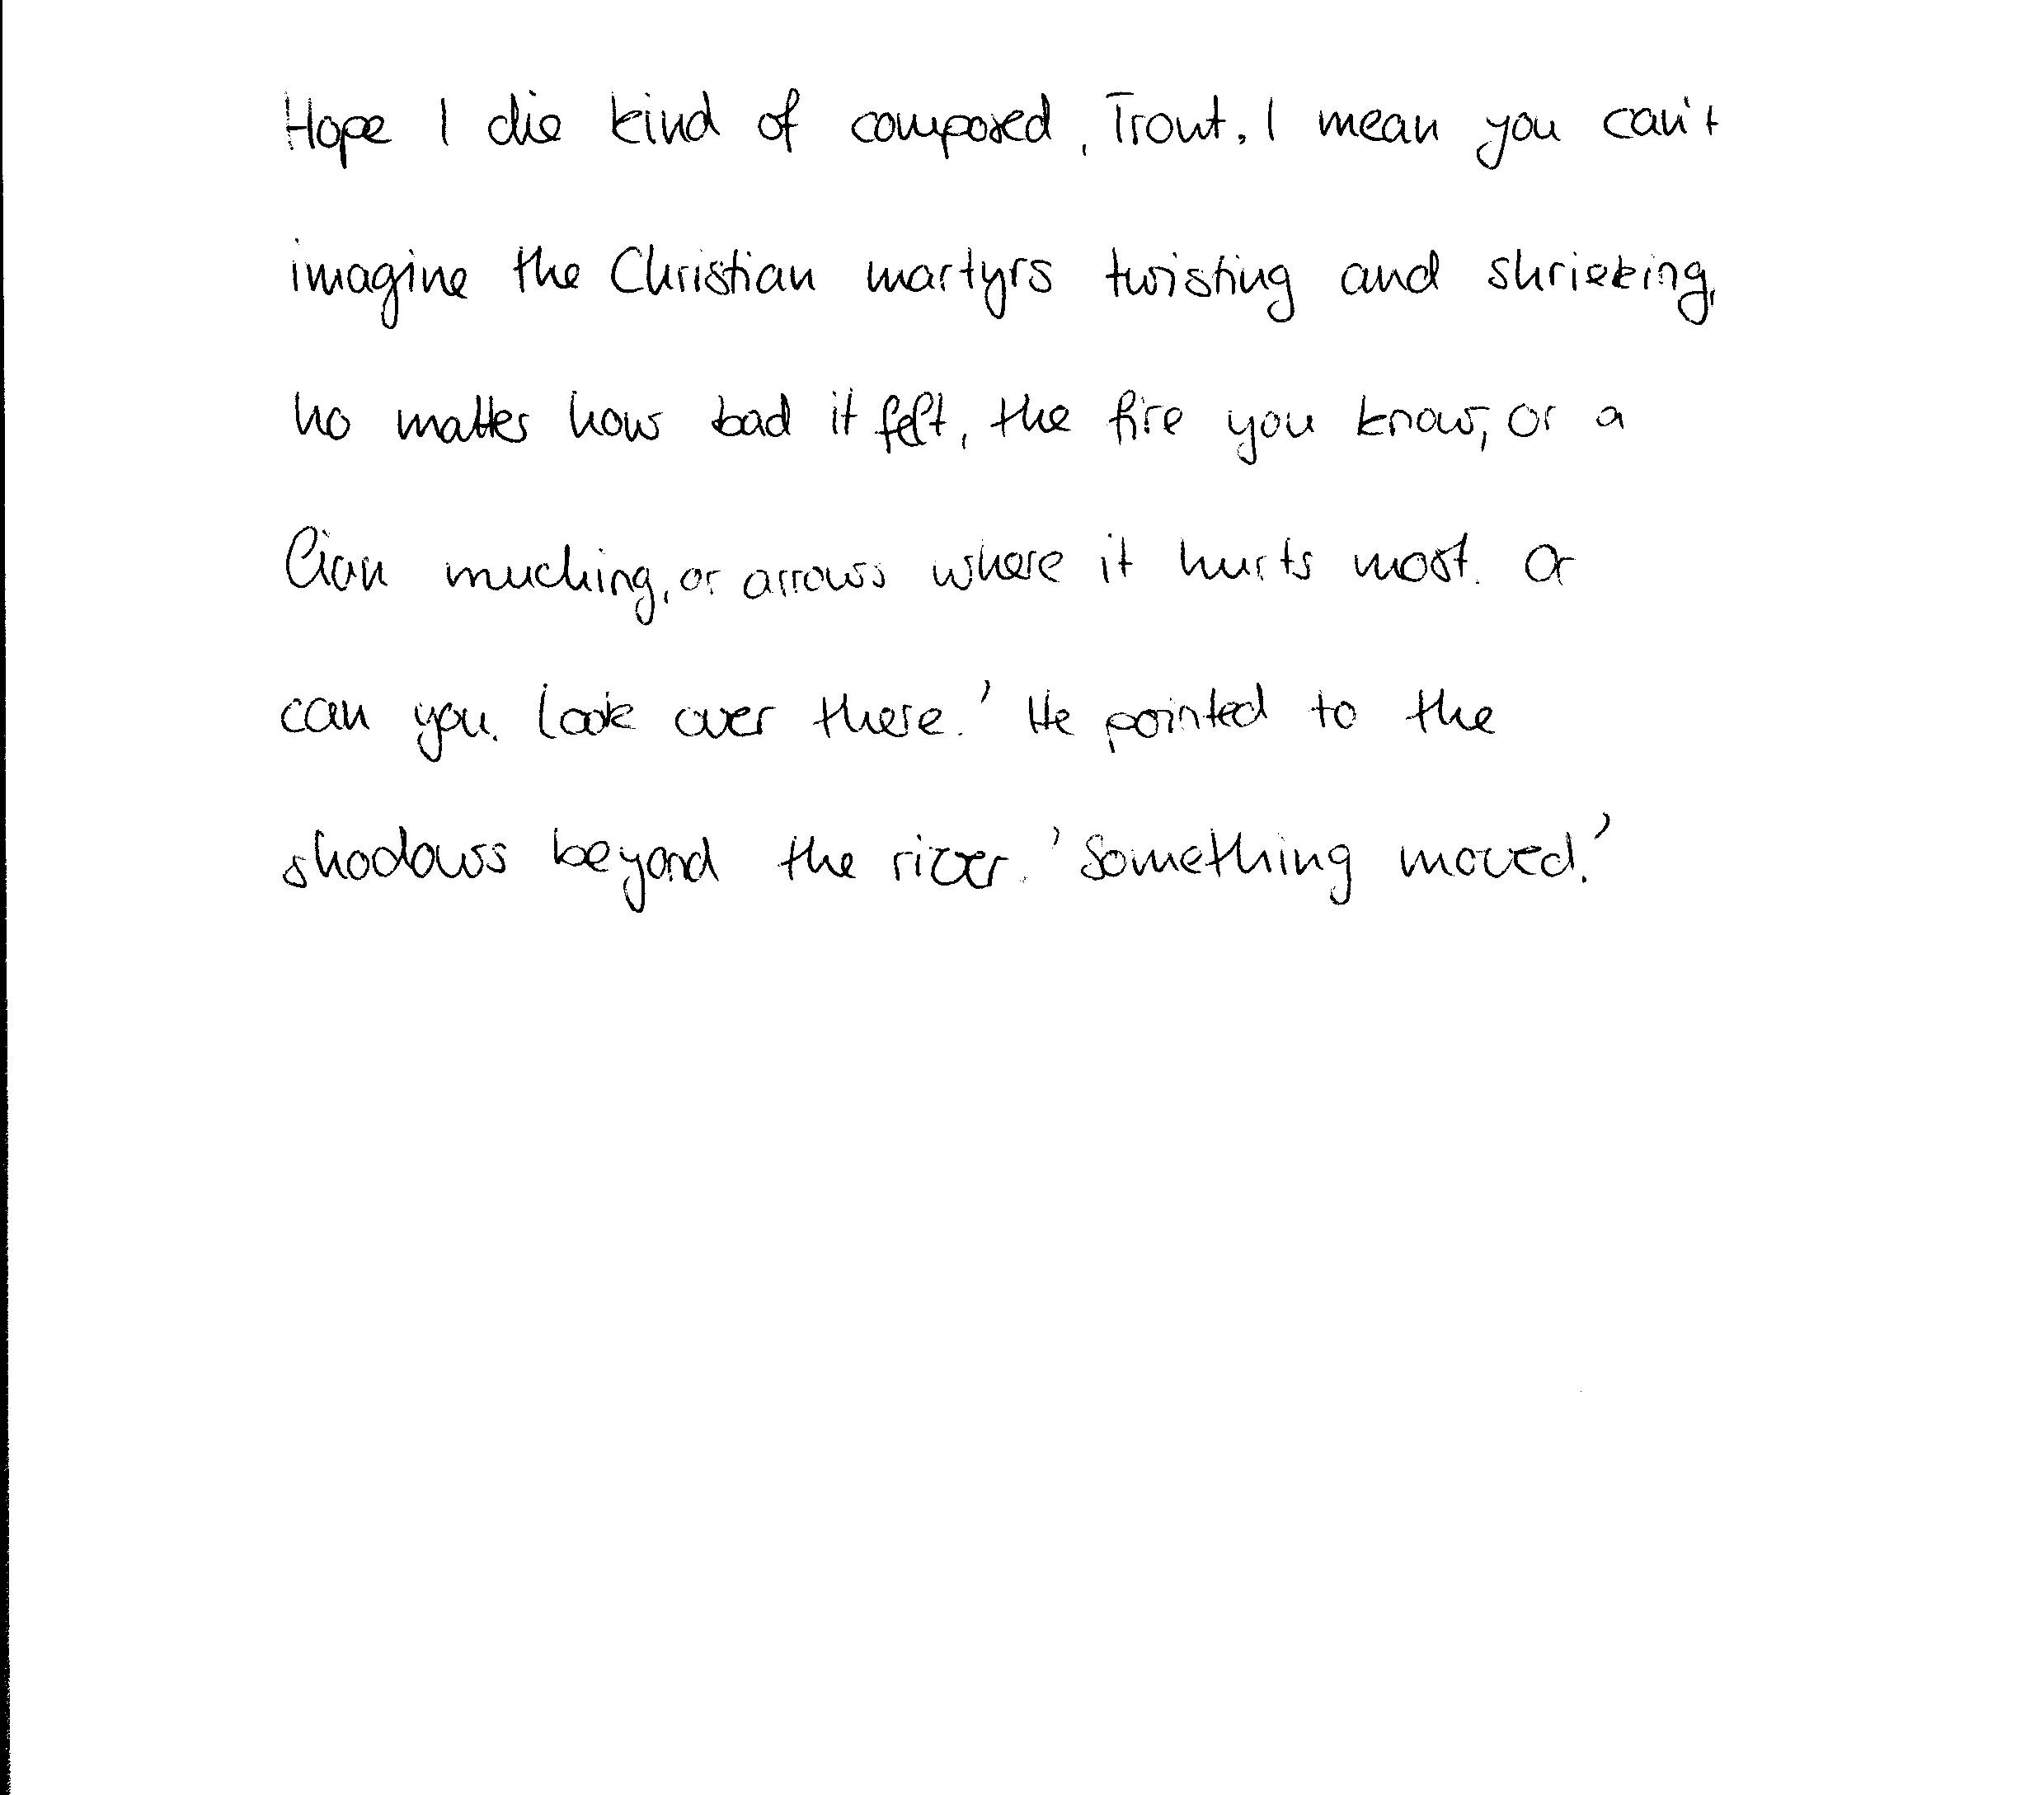 Hope I die kind of composed, Trout. I mean you can't
imagine the Christian martyrs twisting and shrieking,
no matter how bad it felt, the fire you know, or a
lion muching, or arrows where it hurts most. Or
can you. Look over there.' He pointed to the
shadows beyond the river. 'Something moved.'